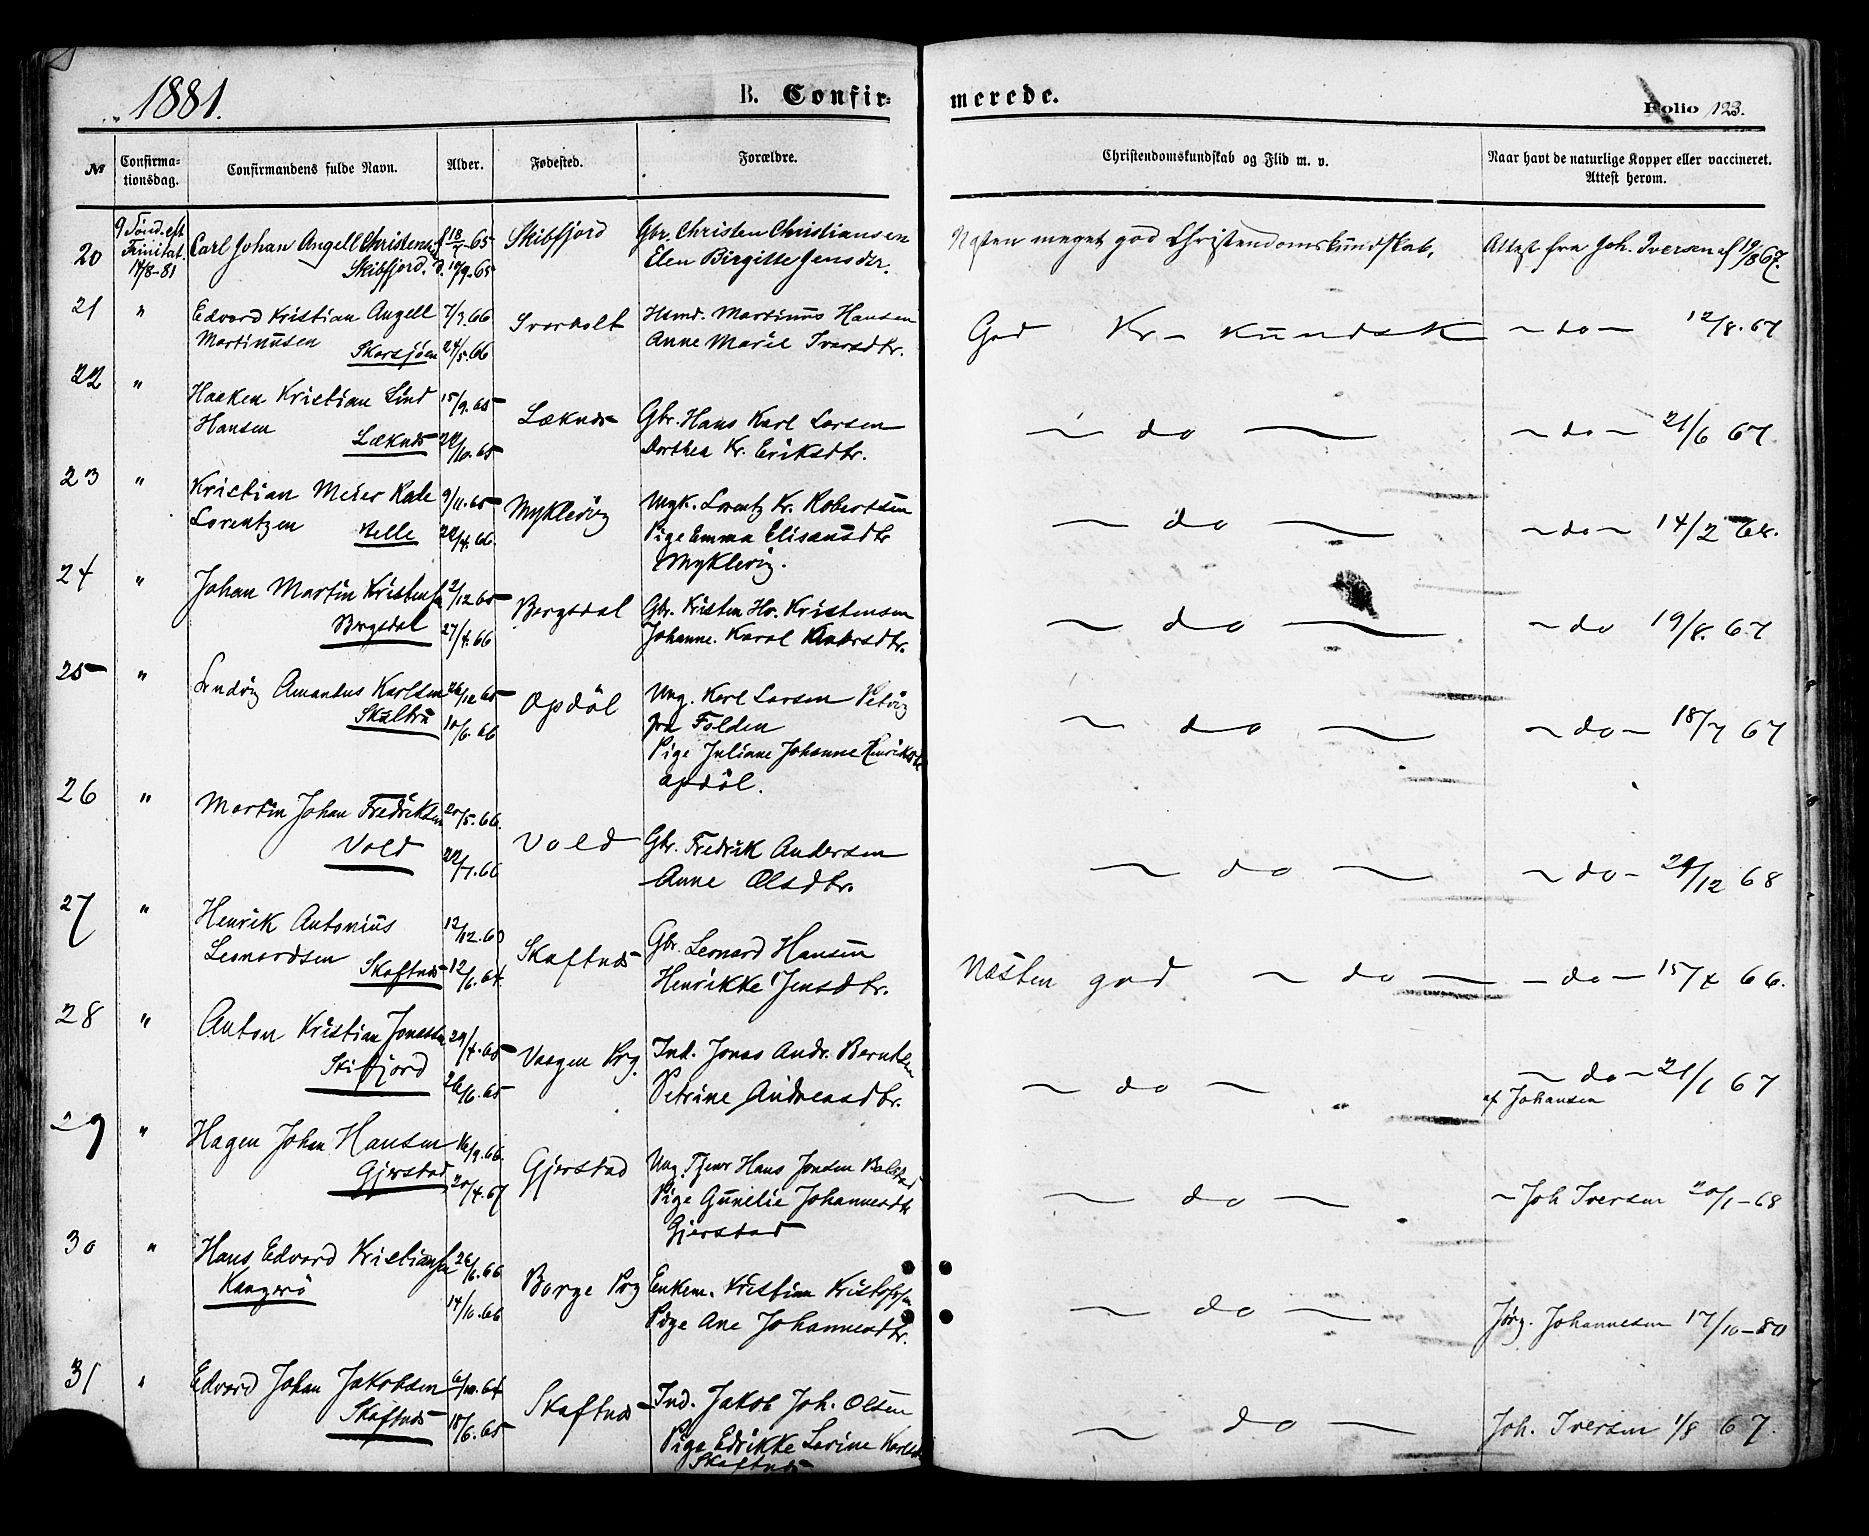 1881.
B. Confir-
merede.
Folio 123.
№
Confirma-
tionsdag.
Confirmandens fulde Navn.
Alder.
Fødested.
Forældre.
Christendomskundskab og Flid m. v.
Naar havt de naturlige Kopper eller vaccineret.
Attest herom.
20
9 Sønd. eft
Trinitat.
14/8-81
Carl Johan Angell Christens.
Skibfjord.
f. 18/7 65
d. 17/9.65
Skibfjord
Gbr. Christen Christiansen
Elen Birgitte Jensdtr.
Nesten meget god Christendomskundskab.
Attest fra Joh. Iversen af 19/8 67.
21 "
Edvard Kristian Angell
Martinusen
Skarsjøen
7/3.66
24/5.66
Svarholt
Hsmd. Martinus Hansen
Anne Marie Iversdtr.
God Kr- Kundsk
- do - 12/8.67
22 "
Haaken Kristian Lind
Hansen
Læknes
15/9.65
22/10.65
Læknes
Gbr. Hans Karl Larsen
Dorthea Kr. Eriksdtr.
- do -
- do - 21/6 67.
23 "
Kristian Meier
Lorentzen
Helle
9/11.65
22/4.66
Myklevig
Ungk. Lorentz Kr. Robertsen
Pige Emma Elisæusdtr
Myklevig.
- do -
- do - 14/2 68.
24 "
Johan Martin Kristensen
Bergsdal
2/12 65
27/4.66
Bergsdal
Gbr. Kristen Hr. Kristensen
Johanne. Karol
- do -
- do 19/8. 67
25 "
Ludvig Amandus Karlsen
Skultru
26/12 65
10/6.66
Opdøl
Ung. Karl Larsen Petvig
fra Folden
Pige Juliane Johanne Henriksdtr
Opdøl.
- do -
- do - 18/7 67
26 "
Martin Johan Fredriksen
Vold
20/5.66.
22/7.66
Vold
Gbr. Fredrik Andersen
Anne Olsdtr.
- do -
- do - 29/12 68
27 "
Henrik Antonius
Leonardsen
Skaftnes
12/12.63
12/6.64
Skaftnes
Gbr. Leonard Hansen
Henrikke Jensdtr.
Næsten god - do -
- do - 15/4 66.
28 "
Anton Kristian Jonassen
Skifjord
29/4.65
26/6.65
Vaagen Prg.
Ind. Jonas Andr. Berntsen
Petrine Andreasdtr.
- do -
- do - 21/1 67
af Johansen
29 "
Hagen Johan Hansen
Gjerstad
16/9.66.
20/4.67
Gjerstad
Ung. Tjener Hans Jonsen Bolstad
Pige Gunelie Johannesdtr
Gjerstad
- do -
- Joh Iversen 20/1-68
30 "
Hans Edvard Kristiansen
Kangerø
26/6.66
14/10.66
Borge Prg
Enkem. Kristian Kristoffersen
Pige Ane Johannesdtr.
- do -
Jørg. Johannesen 17/10-80
31 "
Edvard Johan Jakobsen
Skaftnes
6/10.64
18/6.65
Skaftnes
Ind. Jakob Joh. Olsen
Pige Edrikke Lorine Karlsdtr
Skaftnes
- do -
Joh. Iversen 1/8 67.